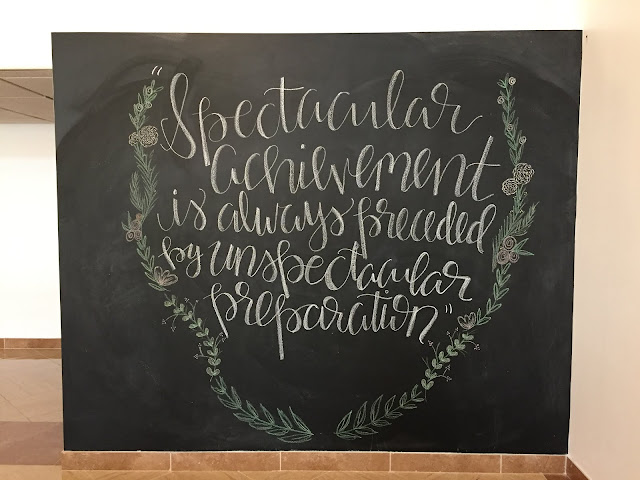 "Spectacular
achievement
is always preceded
by unspectacular
preparation"